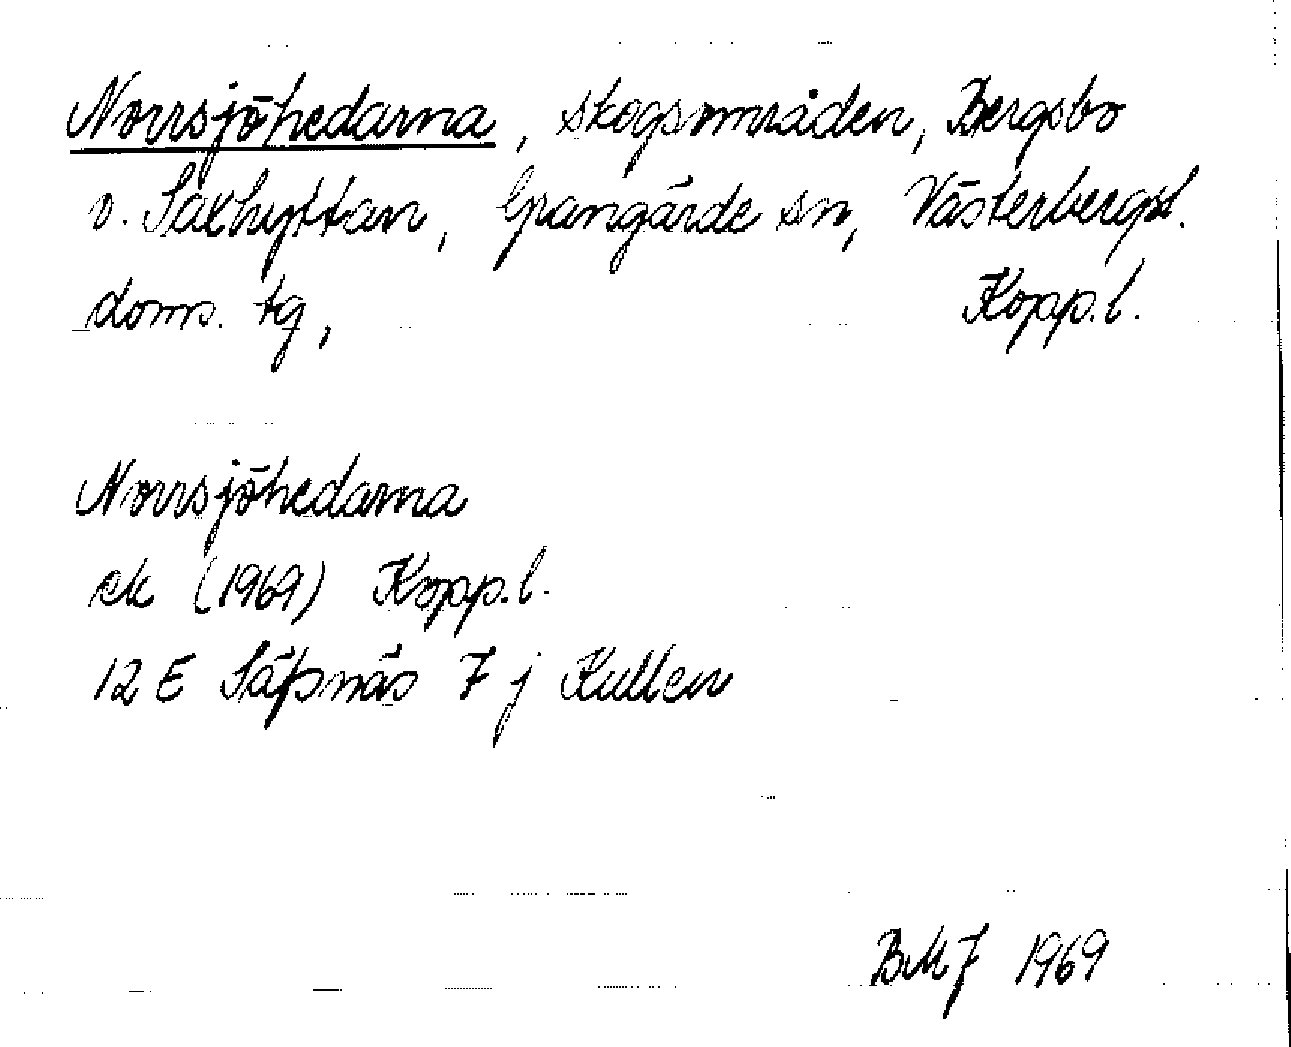 Norrsjöhedarna, skogsområden, Bergsbo
v. Saxhyttan, Grangärde sn, Västerbergsl.
doms. tg, Kopp.l.
Norrsjöhedarna
ek (1969) Kopp.l.
12 E Säfsnäs 7 j Kullen
BMJ 1969